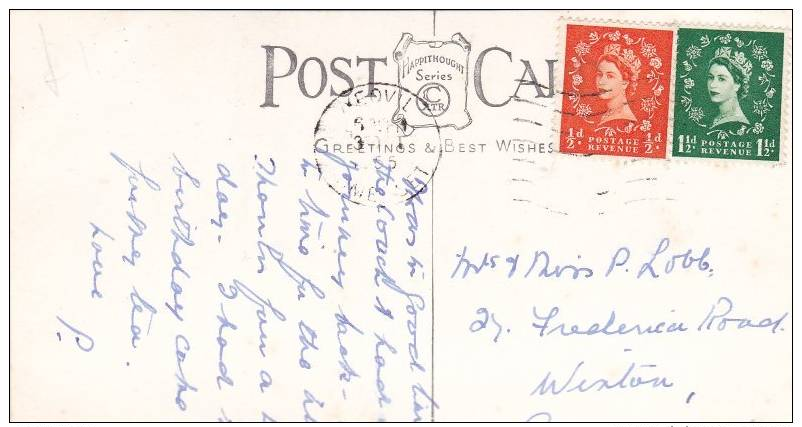 POST CA
HAPPITHOUGHT
Series
C
XTR
GREETINGS & BEST WISHES
YEOVIL
55
½d ½d
POSTAGE
REVENUE
1½d 1½d
POSTAGE
REVENUE
Was in good
the coach & had
journey back -
in time for the
Thanks for a
day - I had
birthday cake
for my tea.
Love P.
Mrs & Miss P. Lobb,
27, Frederica Road
Winton,